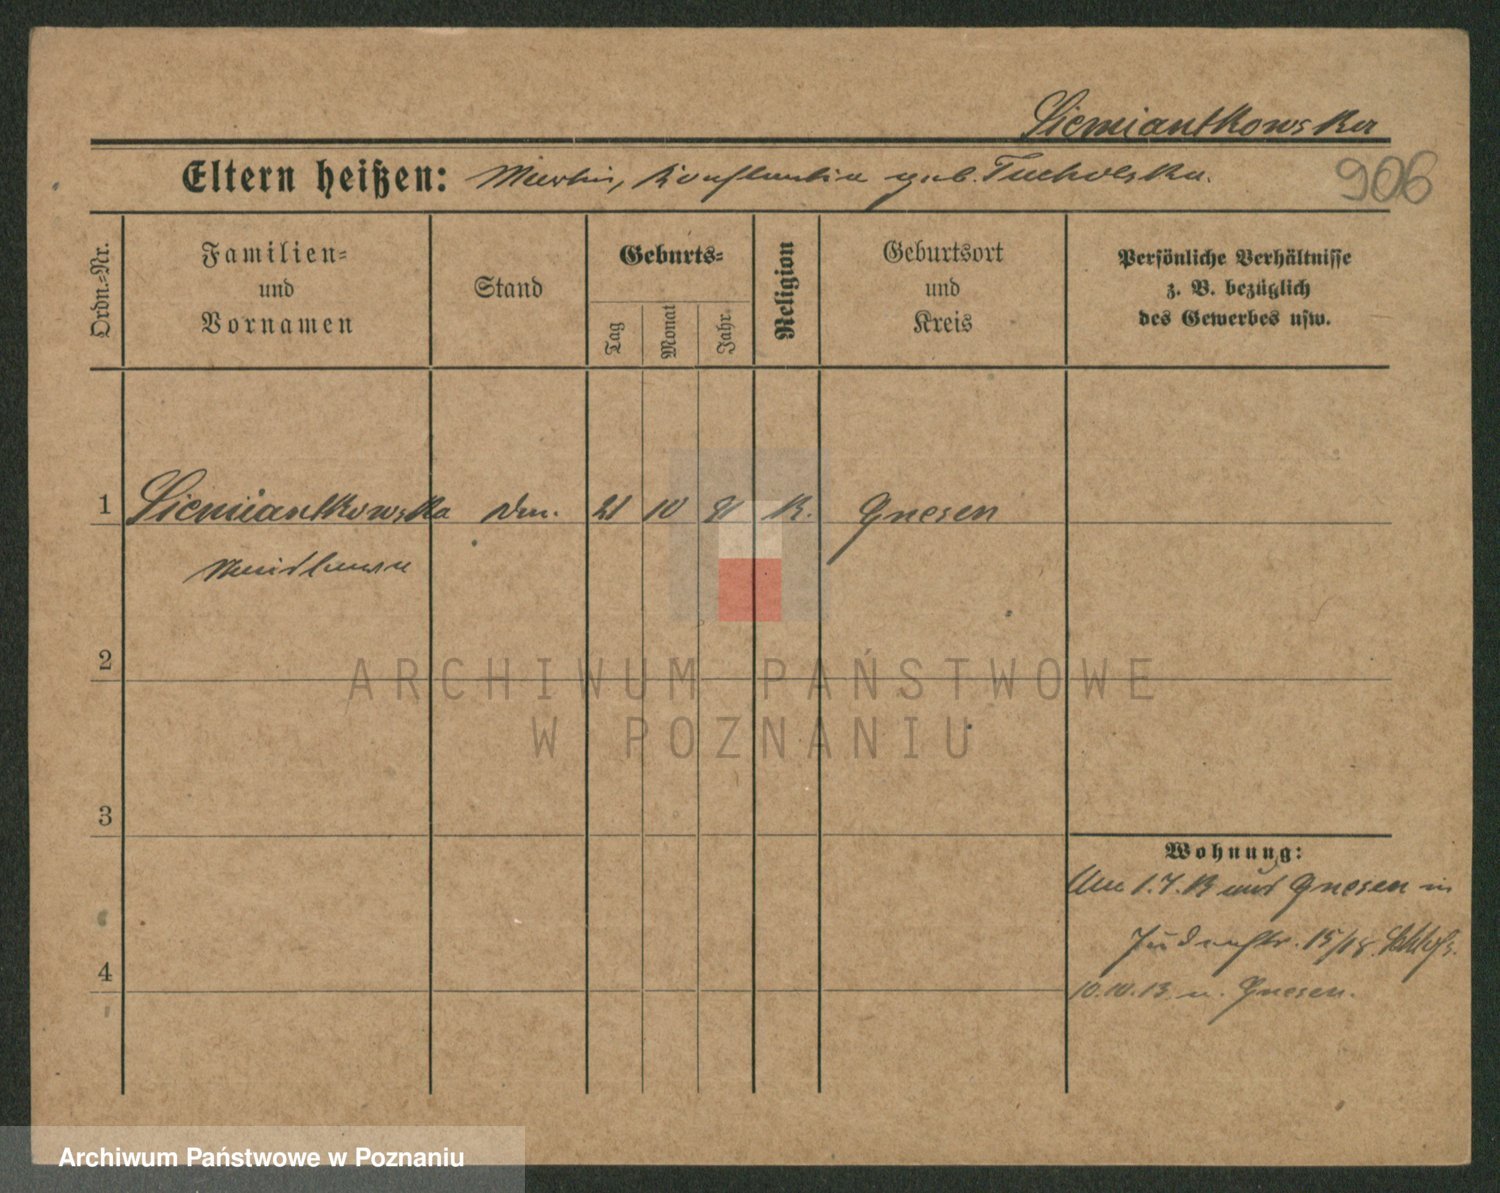 Siemiantkowska
Eltern heißen: Martin, Konstantia geb. Tucholska.
906
Ordn.=Nr.
Familien=
und
Vornamen
Stand
Geburts=
Tag
Monat
Jahr
Religion
Geburtsort
und
Kreis
Persönliche Verhältnisse
z. B. bezüglich
des Gewerbes usw.
1 Siemiantkowska 21 10 K. Gnesen
2
ARCHIWUM PAŃSTWOWE
W POZNANIU
3
Wohnung:
Am 1.7.13 aus Gnesen in
Judenstr. 15/18
4
10.10.13 n. Gnesen.
Archiwum Państwowe w Poznaniu